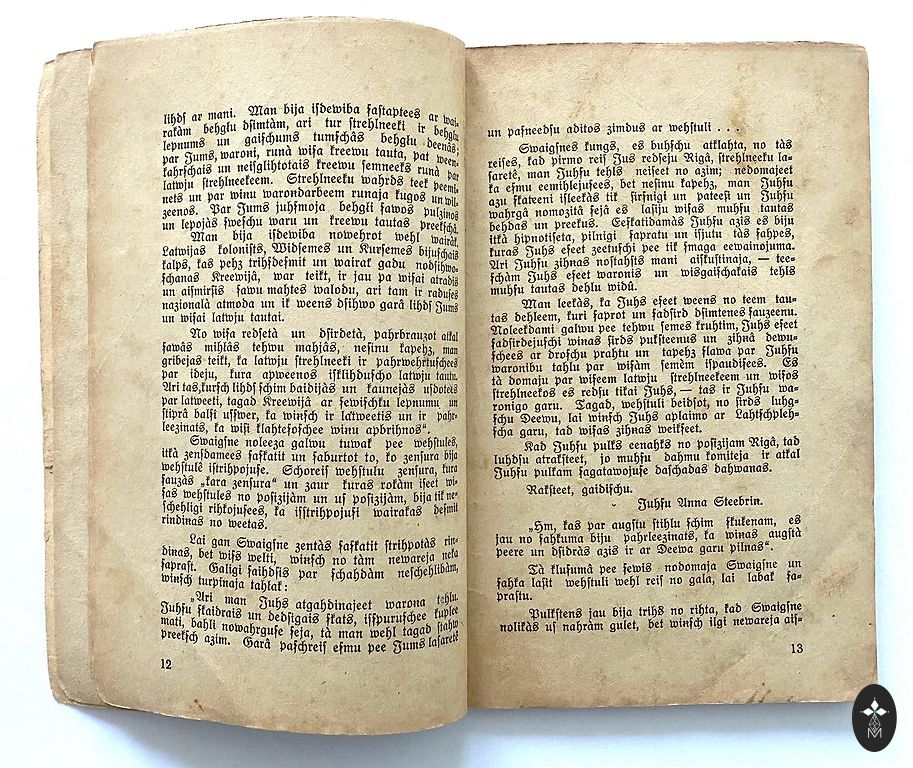 lihdſ ar mani. Man bija iſdewiba ſaſtaptees ar wai-
rakàm behgļu dſimtàm, ari tur ſtrehlneeki ir behgļu
lepnums un gaiſchums tumſchâs behgļu deenâs;
par Jums, waroni, runà wiſa kreewu tauta, pat ween-
kahrſchais un neiſglihtotais kreewu ſemneeks runà par
latwju ſtrehlneekeem. Strehlneeku wahrds teek peemi-
nets un par wiņu warondarbeem runaja kugos un wil-
zeenos. Par Jums juhſmoja behgļi ſawos pulziņos
un lepojàs ſweſchu waru un kreewu tautas preekſchâ.
Man bija iſdewiba nowehrot wehl wairâk.
Latwijas koloniſts, Widſemes un Kurſemes bijuſchais
kalps, kas pehz trihſdeſmit un wairak gadu nodſihwo-
ſchanas Kreewijâ, war teikt, ir jau pa wiſai atradis
un aiſmirſis ſawu mahtes walodu, ari tam ir raduſes
nazionalà atmoda un ik weens dſihwo garâ lihdſ Jums
un wiſai latwju tautai.
No wiſa redſetà un dſirdetà, pahrbrauzot atkal
ſawâs mihļâs tehwu mahjâs, neſinu kapehz, man
gribejas teikt, ka latwju ſtrehlneeki ir pahrwehrtuſchees
par ideju, kura apweenos iſklihduſcho latwju tautu.
Ari tas, kurſch lihdſ ſchim baidijàs un kaunejàs uſdotees
par latweeti, tagad Kreewijâ ar ſewiſchķu lepnumu un
ſtiprâ balſi uſſwer, ka wiņſch ir latweetis un ir pahr-
leezinats, ka wiſi klahteſoſchee wiņu apbrihnos“.
Swaigſne noleeza galwu tuwak pee wehſtules,
itkâ zenſdamees ſaſkatit un ſaburtot to, ko zenſura bija
wehſtulê iſtrihpojuſe. Schoreiſ wehſtulu zenſura, kura
ſauzàs „kara zenſura“ un zaur kuras rokàm iſeet wi-
ſas wehſtules no poſizijàm un uſ poſizijàm, bija tik ne-
ſchehligi rihkojuſees, ka iſſtrihpojuſi wairakas deſmit
rindiņas no weetas.
Lai gan Swaigſne zentàs ſaſkatit ſtrihpotàs rin-
diņas, bet wiſs welti, wiņſch no tàm newareja neka
ſapraſt. Galigi ſaihdſis par ſchahdàm neſchehlibàm,
wiņſch turpinaja tahlak:
„Ari man Juhs atgahdinajeet warona tehlu.
Juhſu ſkaidrais un dedſigais ſkats, iſſpuruſchee kuplee
mati, bahli nowahrguſe ſeja, tà man wehl tagad ſtahw
preekſch azim. Garâ paſchreiſ eſmu pee Jums laſaretê
12
un paſneedſu aditos zimdus ar wehſtuli . . .
Swaigſnes kungs, es buhſchu atklahta, no tàs
reiſes, kad pirmo reiſ Jus redſeju Rigâ, ſtrehlneeku la-
ſaretê, man Juhſu tehls neiſeet no azim; nedomajeet
ka eſmu eemihlejuſees, bet neſinu kapehz, man Juhſu
azu ſkateeni iſleekàs tik ſirſnigi un pateeſi un Juhſu
wahrgâ nomozitâ ſejâ es laſiju wiſas muhſu tautas
behdas un preekus. Eeſkatidamàs Juhſu azis es biju
itkâ hipnotiſeta, pilnigi ſapratu un iſjutu tàs ſahpes,
kuras Juhs eſeet zeetuſchi pee tik ſmaga eewainojuma.
Ari Juhſu zihņas noſtahſts mani aiſkuſtinaja, — tee-
ſchàm Juhs eſeet waronis un wisgaiſchakais tehls
muhſu tautas dehlu widû.
Man leekàs, ka Juhs eſeet weens no teem tau-
tas dehleem, kuri ſaprot un ſadſird dſimtenes ſauzeenu.
Noleekdami galwu pee tehwu ſemes kruhtim, Juhs eſeet
ſadſirdejuſchi wiņas ſirds pukſteenus un zihņâ dewu-
ſchees ar droſchu prahtu un tapehz ſlawa par Juhſu
waronibu tahlu par wiſàm ſemèm iſpauduſees. Es
tà domaju par wiſeem latwju ſtrehlneekeem un wiſos
ſtrehlneekos es redſu tikai Juhs, — tas ir Juhſu wa-
ronigo garu. Tagad, wehſtuli beidſot, no ſirds luhg-
ſchu Deewu, lai wiņſch Juhs aplaimo ar Lahtſchpleh-
ſcha garu, tad wiſas zihņas weikſeet.
Kad Juhſu pulks eenahks no poſizijam Rigâ, tad
luhdſu atrakſteet, jo muhſu dahmu komiteja ir atkal
Juhſu pulkam ſagatawojuſe daſchadas dahwanas.
Rakſteet, gaidiſchu.
Juhſu Anna Steebriņ.
„Hm, kas par augſtu ſtihlu ſchim ſkuķenam, es
jau no ſahkuma biju pahrleezinats, ka wiņas augſtâ
peere un dſidràs azis ir ar Deewa garu pilnas“.
Tà kluſumâ pee ſewis nodomaja Swaigſne un
ſahka laſit wehſtuli wehl reiſ no gala, lai labak ſa-
praſtu.
Pulkſtens jau bija trihs no rihta, kad Swaigſne
nolikàs uſ nahràm gulet, bet wiņſch ilgi newareja aiſ-
13